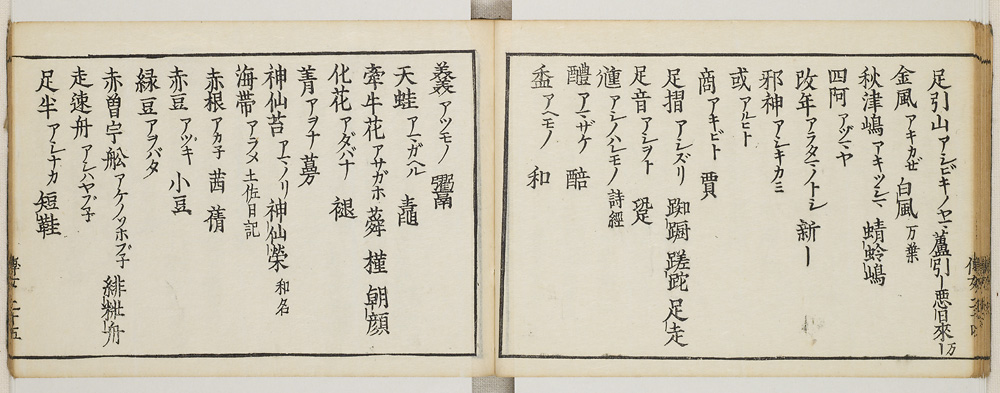 足引山 アシビキノヤマ 蘆引ー 悪旧來ー 万
金風 アキカゼ 白風 万葉
秋津嶋 アキツシマ 蜻蛉嶋
四阿 アヅマヤ
改年 アラタマノトシ 新ー
邪神 アシキカミ
或 アルヒト
商 アキビト 賈
足摺 アシズリ 踟蹰 蹉跎 足走
足音 アシヲト 跫
アシノハレモノ 詩經
醴 アマザケ 醅
盉 アヘモノ 和
羹 アツモノ
天蛙 アマガヘル 鼃
牽牛花 アサガホ 蕣 槿 朝顔
化花 アダバナ 褪
菁 アヲナ 蔓
神仙苔 アマノリ 神仙榮 和名
海帯 アラメ 土佐日記
赤根 アカ子 茜 蒨
赤豆 アヅキ 小豆
緑豆 アヲバタ
赤曽宇舩 アケノソホブ子 緋粃舟
走速舟 アシハヤブ子
足半 アシナカ 短鞋